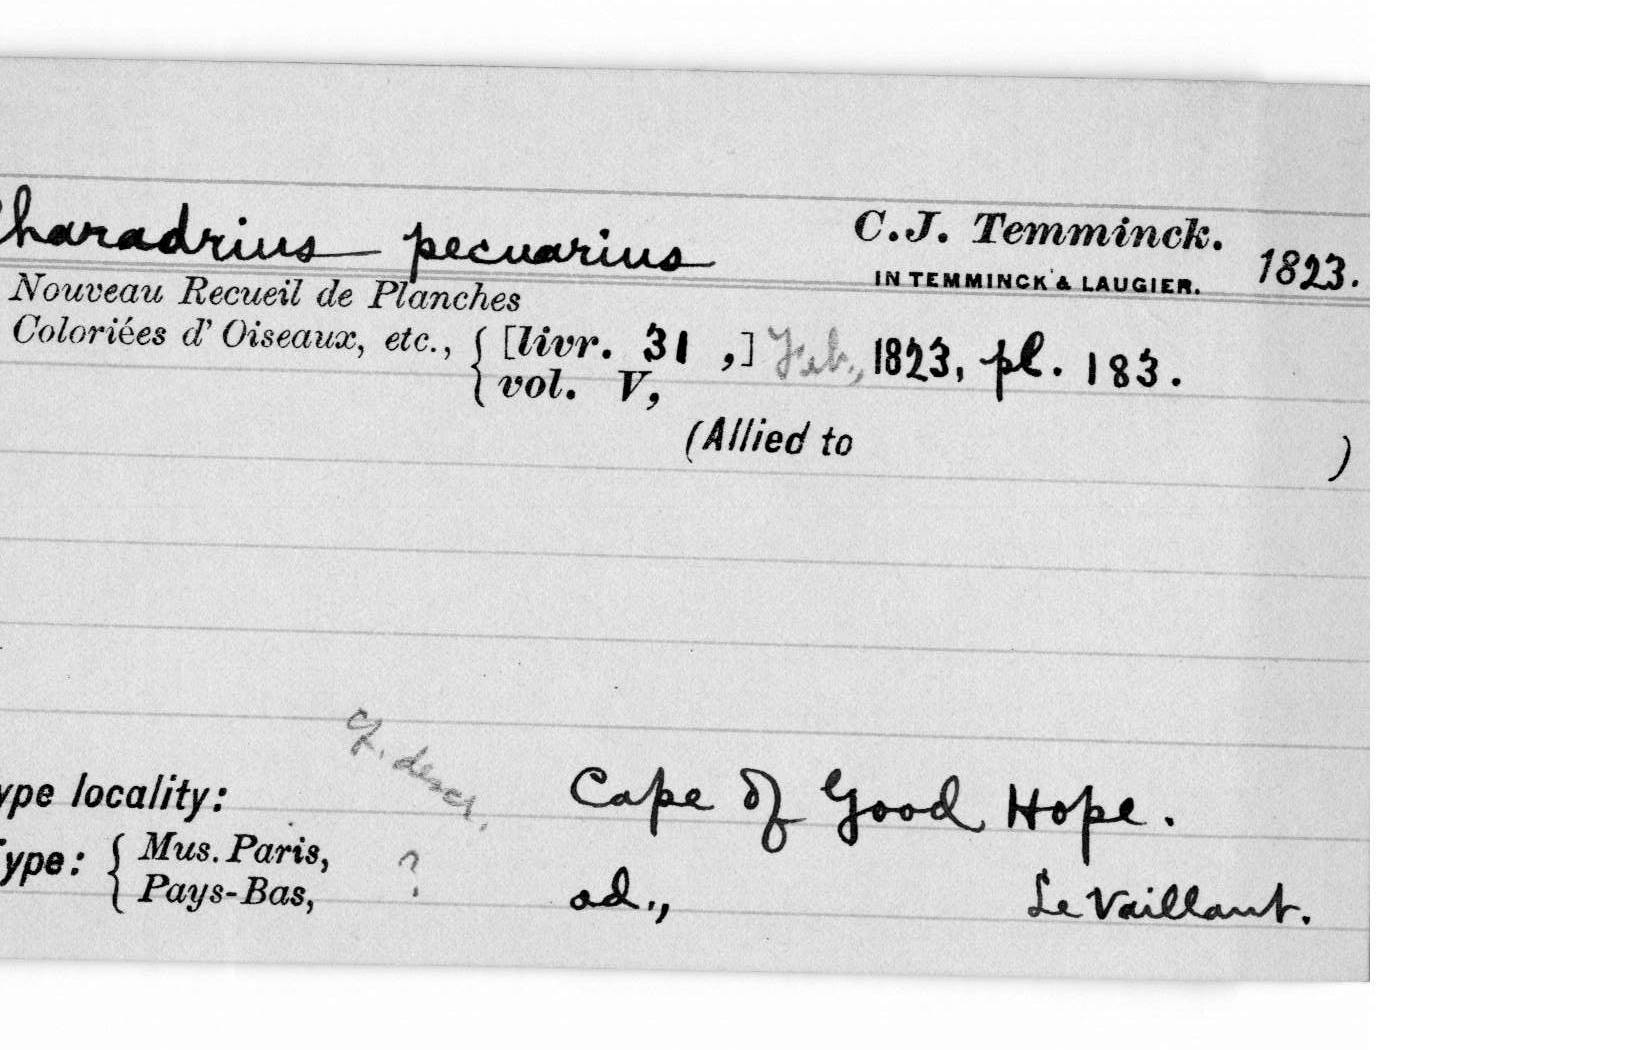 Charadrius pecuarius C.J. Temminck. 1823.
IN TEMMINCK & LAUGIER.
Nouveau Recueil de Planches
Coloriées d' Oiseaux, etc., { [livr. 31 ,] Feb., 1823, pl. 183.
vol. V,
(Allied to )
cf. descr.
ype locality: Cape of Good Hope.
Type: { Mus. Paris, ? ad., Le Vaillant.
Pays-Bas,